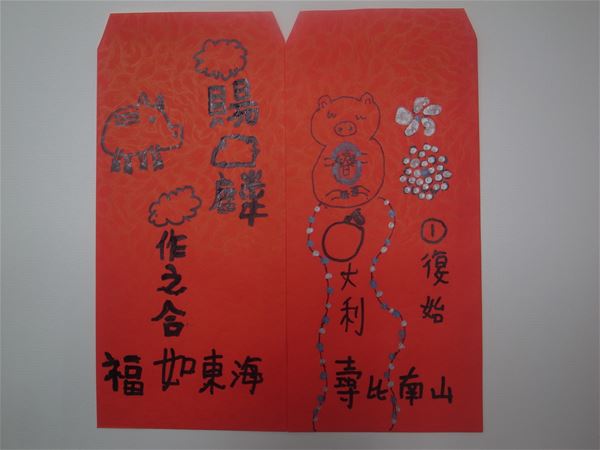 賜
麟
作之合
福如東海
①復始
大利
壽比南山